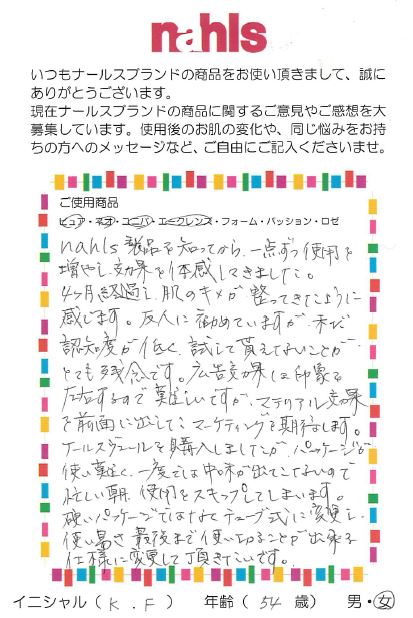 nahls
いつもナールスブランドの商品をお使い頂きまして、誠に
ありがとうございます。
現在ナールスブランドの商品に関するご意見やご感想を大
募集しています。使用後のお肌の変化や、同じ悩みをお持
ちの方へのメッセージなど、ご自由にご記入くださいませ。
ご使用商品
ピュア・ネオ・ユニバ・エークレンズ・フォーム・パッション・ロゼ
nahls製品を知ってから、一点ずつ使用を
増やし、効果を体感してきました。
4ヶ月経過し、肌のキメが整ってきたように
感じます。友人に勧めていますが、未だ
認知度が低く、試して貰えないことが、
とても残念です。広告効果は印象を
左右するので難しいですが、マテリアル効果
を前面に出して、マーケティングを期待します。
ナールスジェールを購入しましたが、パッケージが
使い難く、一度では中味が出てこないので
忙しい朝、使用をスキップしてしまいます。
硬いパッケージではなくチューブ式に変更し、
使い易さ、最後まで使い切ることが出来る
仕様に変更して頂きたいです。
イニシャル（ K . F ） 年齢（ 54 歳） 男・女